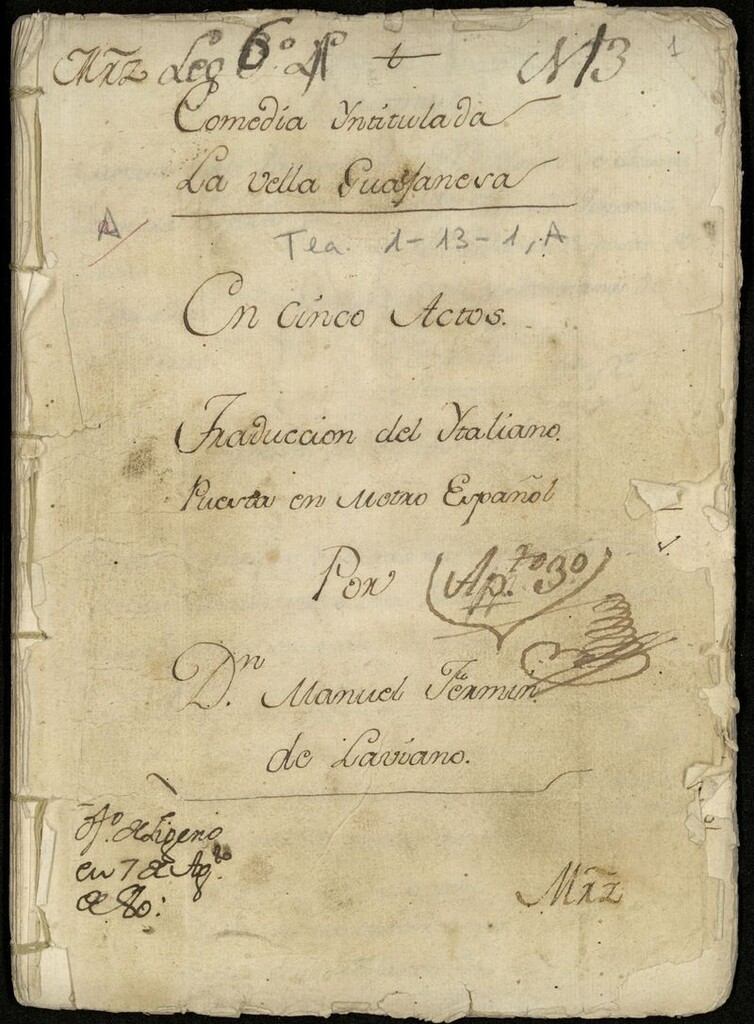 Mrz Leg 6.º N 13 1
Comedia Yntitulada
La Vella Guayanesa
A
Tea 1-13-1, A
En Cinco Actos.
Traduccion del Ytaliano.
Puesta en Metro Español
Por Ap.to 30
D.n Manuel Fermin
de Laviano.
en 7 de Ag.to
de 80:
Mrz